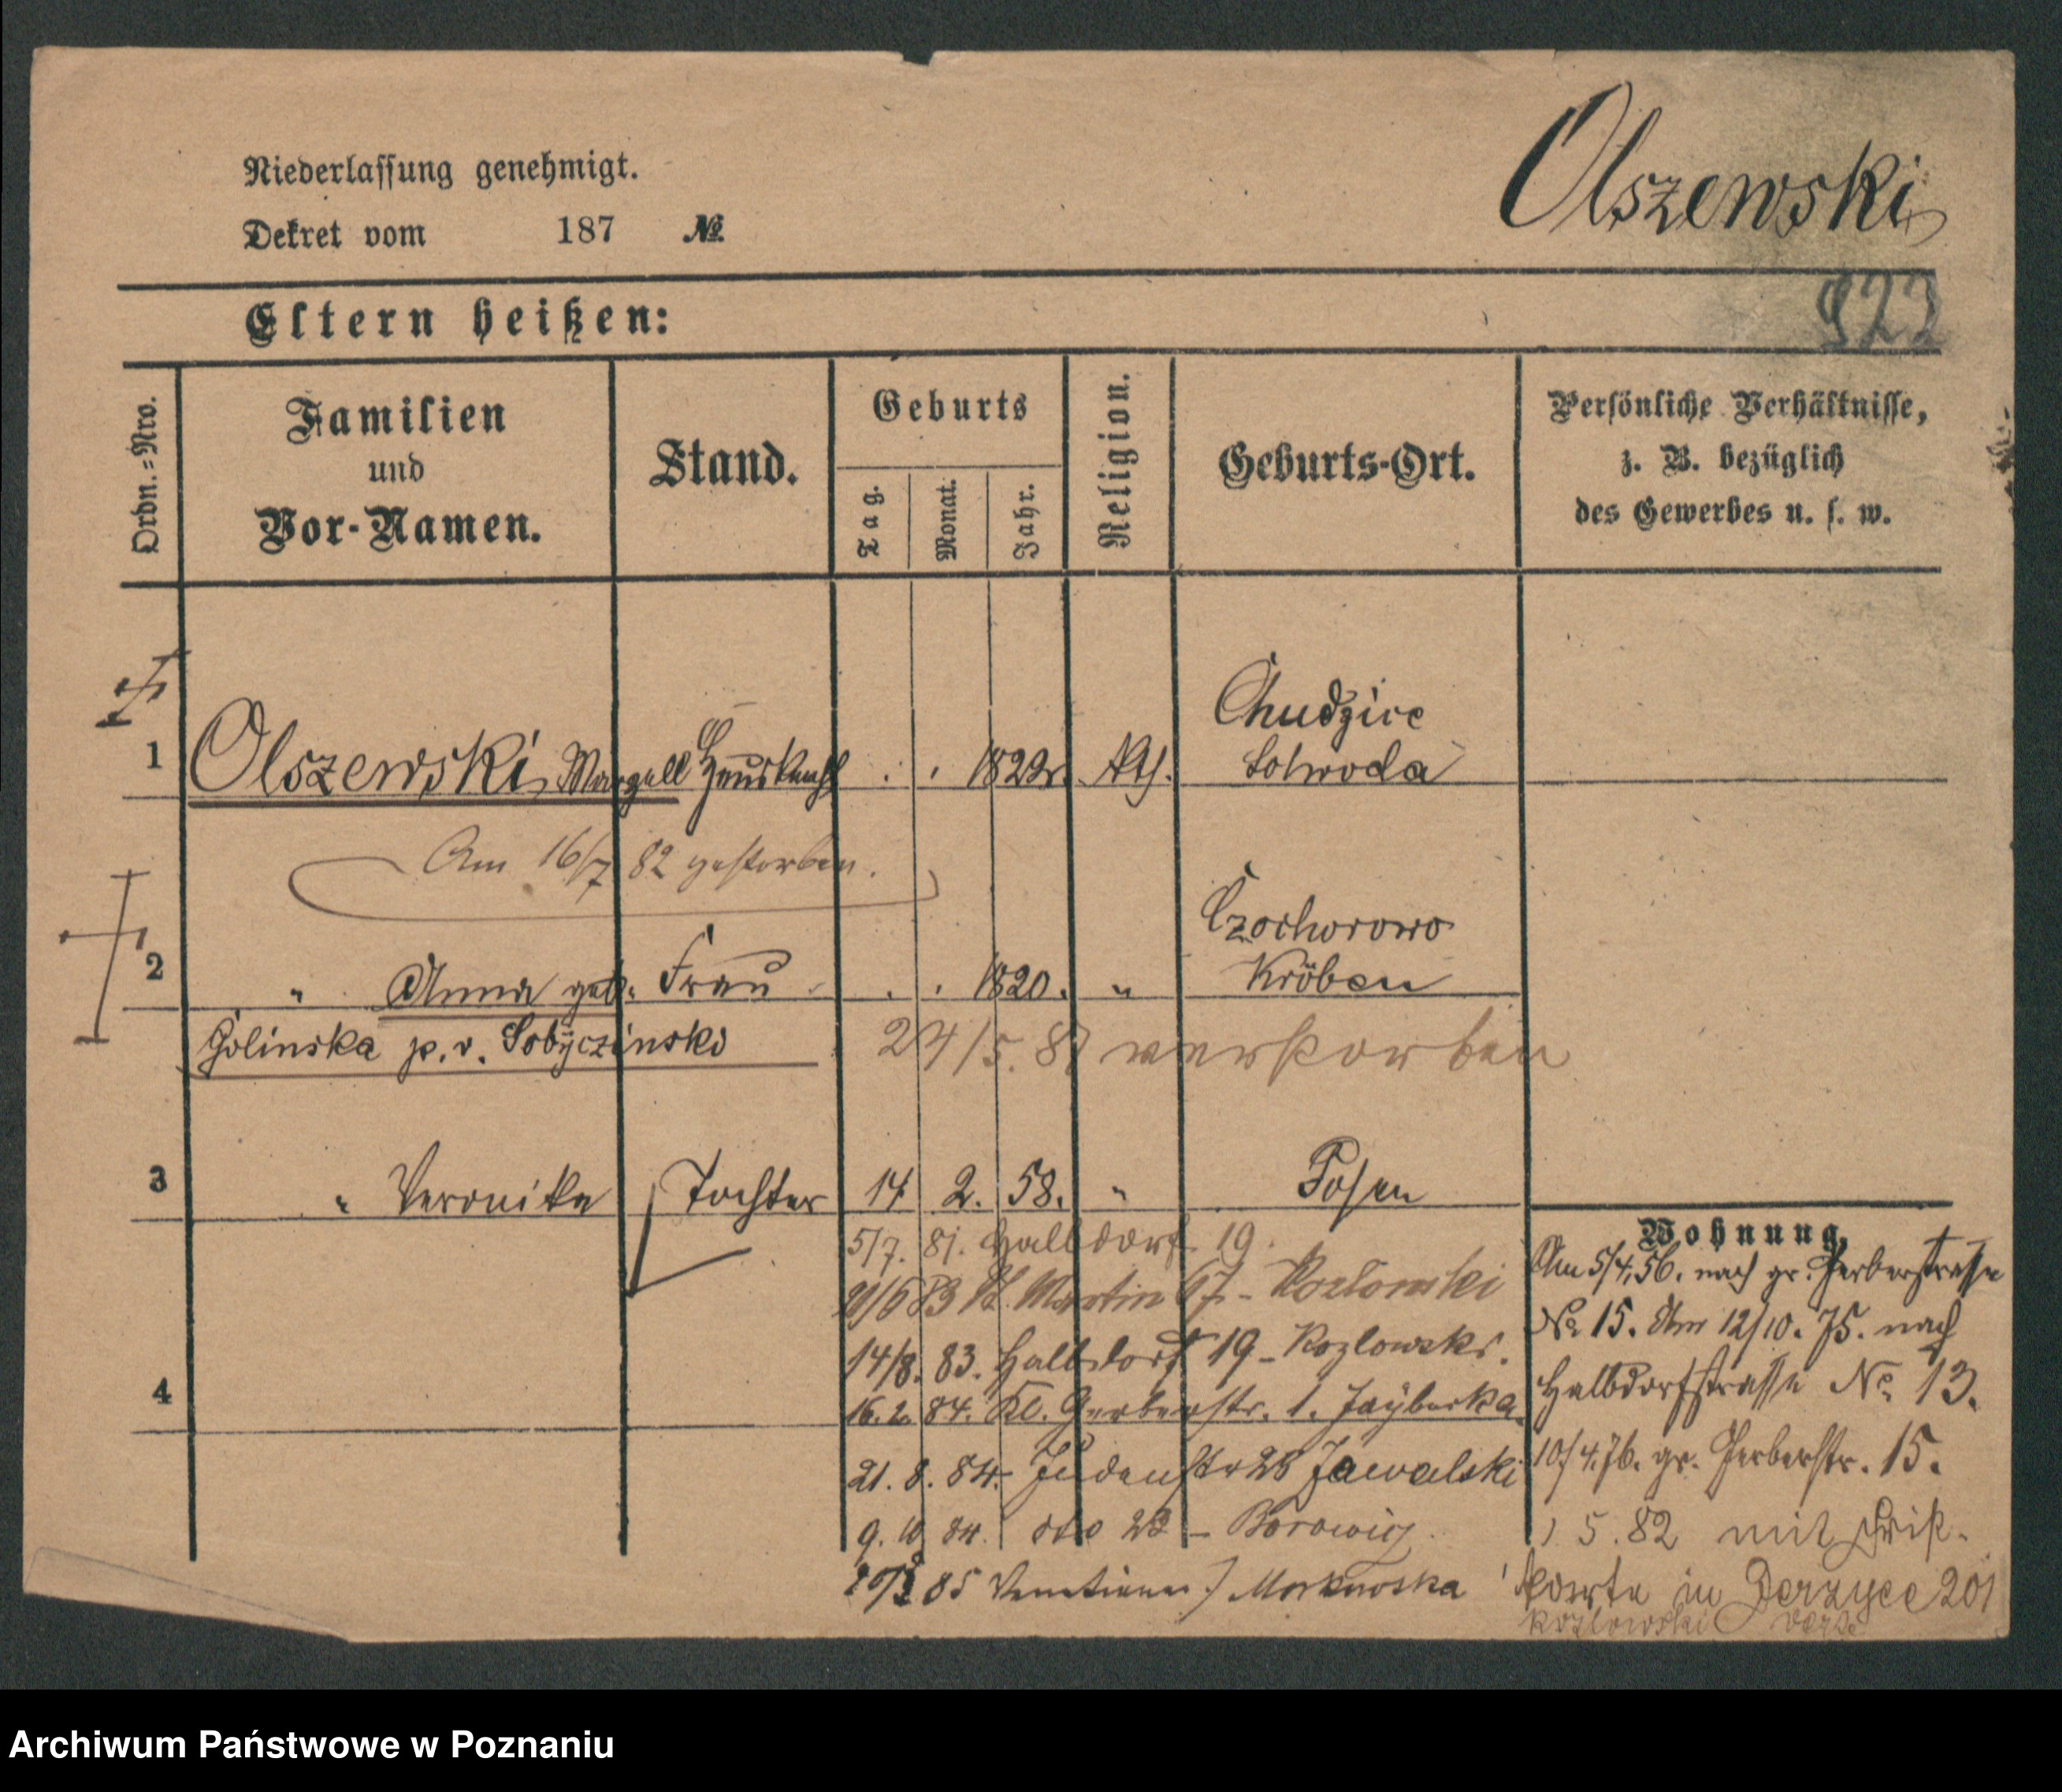 Olszewski
Niederlassung genehmigt.
Dekret vom 187 №
Eltern heißen:
822
Ordn.=Nro.
Familien
und
Vor-Namen.
Stand.
Geburts
Tag.
Monat.
Jahr.
Religion.
Geburts-Ort.
Persönliche Verhältnisse,
z. B. bezüglich
des Gewerbes u. s. w.
1 Olszewski, Marzell 1822. Kth. Chudzice
Am 16/7 82 gestorben.
2 " Anna geb. Frau . . 1820. " Czochorowo
Kröben
Golinska p. v. Sobÿczinski 24/5. 87 verstorben
3 " Veronika Tochter 14 2. 58. " Posen
5/7. 81. Halbdorf 19.
83 St. Martin 67 - Kozlowski
14/8. 83. Halbdorf 19 - Kozlowski.
4 16.2. 84. Kl. Gerberstr. 1.
21. 8. 84. Judenstr 28 Jawalski
9. 10 84. dto 23 - Borowicz.
85 Venetianer
Wohnung.
Am 5/4.56. nach gr. Gerberstrasse
No 15. Am 12/10. 75. nach
Halbdorfstrasse No 13.
10/4.76. gr. Gerberstr. 15.
5.82 mit
karte in Gerzyce 201
Kozlowski
Archiwum Państwowe w Poznaniu